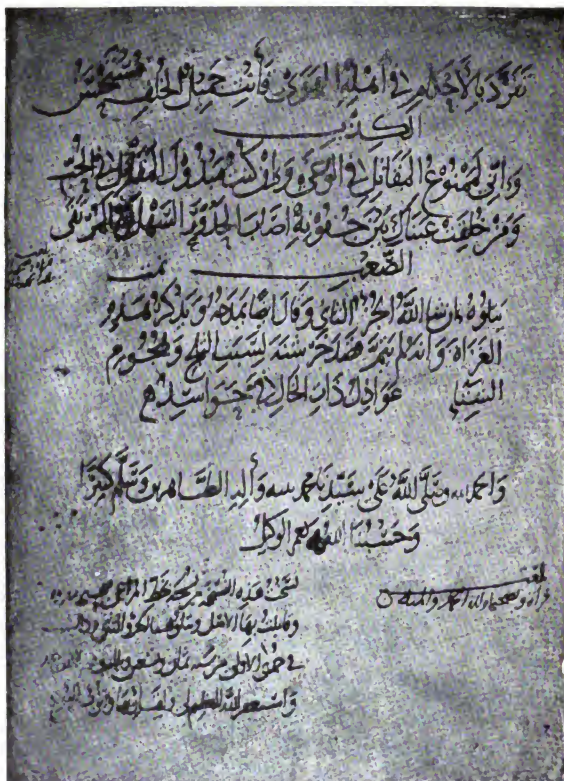 تفرد بالأحكام في أهله الهوى فأنت جميل الخلف مستحسن
الكذب
وإني لممنوع المقاتل في الوغى وإن كنت مبذول المقاتل في الحب
ومن خلقت عيناك بين جفونه أصاب الحدور السهل في المرتقى
الصعب تمت
يتلوه إن شاء الله الجزء الثاني وقال ايضا يمدحه ويذكر هذه
الغزاة وانه لم يتم قصد خرشنة بسبب الثلج وهجوم
الشتاء عواذل ذات الخال في حواسد
والحمد لله وصلى الله على سيدنا محمد نبيه وآله الطاهرين وسلم كثيرا
وحسبنا الله ونعم الوكيل
بلغت
قراءة وتصحيحا ولله الحمد والمنة
هذه النسخة من نسخة بخط
وقابلت بها الأصل
في جمادى الاولى من سنة ثمان وتسعين
واستغفر الله العظيم لي